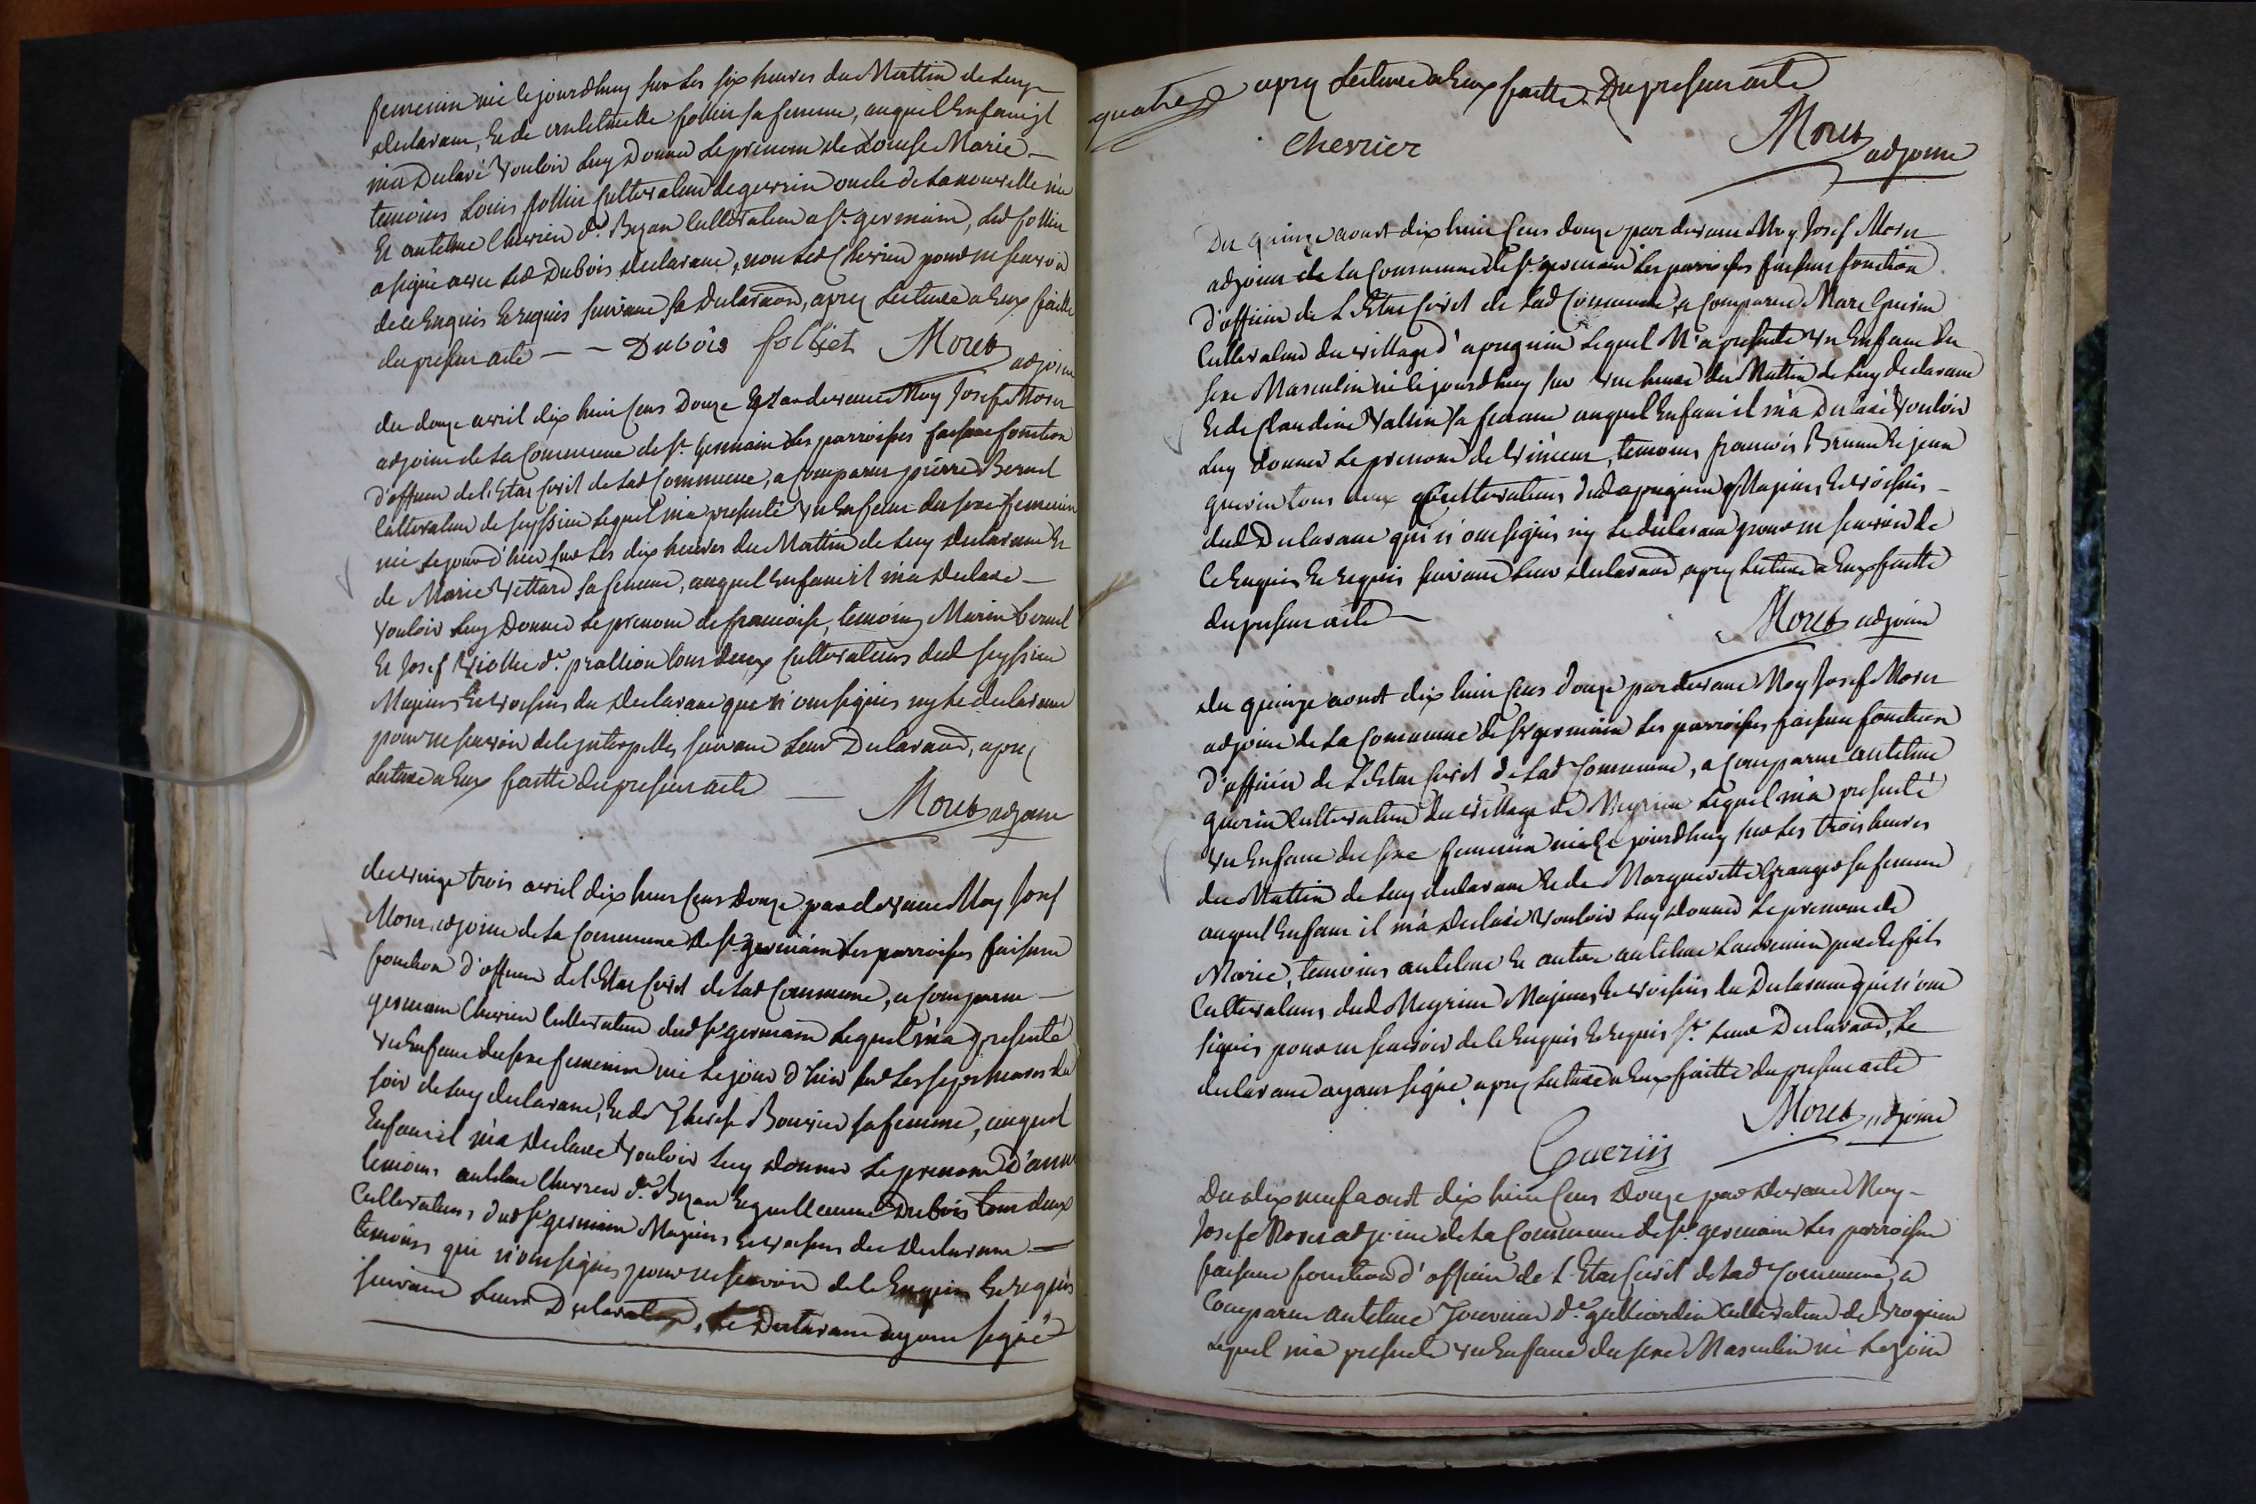 femenin né le jourdhuy sur les six heures du Mattin de Luy
declarant, Et de antelmette folliet sa femme, auquel Enfant il
m'a Declaré Vouloir Luy Donner Le prenom de Louise Marie
temoins Louis folliet Cultivateur de oncle de La nouvelle née
Et antelme Chevrier d.t Bizan Cultivateur a St. germain, Led folliet
a signé avec Led Dubois declarant, non Led Chevrier pour ne scavoir
de ce Enquis Et requis suivant sa Declaraon, apres Lecture a Eux faitte
du present acte — — Dubois folliet Moret adjoint
du douze avril dix huit Cens Douze pardevant Moy Josef Moret
adjoint de La Commune de St. Germain Les parroisses faisant fonction
d'officier de L'Etat Civil de Lad Commune, a Comparu pierre Bernel
Cultivateur de seyssieu Lequel m'a presenté Un Enfant du sexe femenin
né Le jour d'hier sur Les dix heures du Mattin de Luy declarant Et
de Marie Vettard sa femme, auquel Enfant il m'a declaré
Vouloir Luy Donner Le prenom de francoise, temoins Marin bernel
Et Josef d.t prallion tous deux Cultivateurs dud seyssieu
Majeurs Et Voisins du declarant que n'ont signés ny Le declarant
pour ne scavoir de ce interpellés suivant Leur Declaraon, apres
Lecture a Eux faitte du present acte —
Moret adjoint
du Vingt trois avril dix huit Cens Douze pardevant Moy Josef
Moret adjoint de La Commune de St. germain Les parroisses faisant
fonction d'officier de L'Etat Civil de Lad Commune, a Comparu
germain Chevrier Cultivateur dud St. germain Lequel m'a presenté
Un Enfant du sexe femenin né Le jour d'hier sur Les sept heures du
soir de Luy declarant, Et de Therese Bouvier sa femme, auquel
Enfant il m'a Declaré Vouloir Luy donner Le prenom d'anne
temoins antelme Chevrier d.t Bizan Et guillaume Dubois tous deux
Cultivateurs dud St. germain Majeurs Et Voisins du declarant
temoins qui n'ont signés pour ne scavoir de ce Enquis Et requis
suivant Leur Declaration, Le Declarant ayant signé
quatre
apres Lecture a Eux faitte Du present acte
Chevrier Moret adjoint
Du quinze aoust dix huit Cens douze par devant Moy Josef Moret
adjoint de La Commune de St. germain Les parroisses faisant fonction
d'officier de L'Etat Civil de Lad Commune a Comparu Marc Guerin
Cultivateur du Village d'apregnin Lequel M'a presenté Un Enfant du
sexe Masculin né Le jourdhuy sur Une heure du Mattin de Luy declarant
Et de Claudine Vallin sa femme auquel Enfant il m'a Declaré Vouloir
Luy donner Le prenom de Vincent, temoins francois Brunet Et jean
guerin tous deux Cultivateurs dud apregnin Majeurs Et Voisins
dud Declarant qui n'ont signés ny Le declarant pour ne scavoir de
Ce Enquis Et requis suivant Leur declaraon apres Lecture a Eux faitte
du present acte —
Moret adjoint
du quinze aoust dix huit Cens douze pardevant Moy Josef Moret
adjoint de La Commune de St. germain Les parroisses faisant fonction
d'officier de L'Etat Civil de Lad Commune, a Comparu antelme
guerin Cultivateur du Village de Meyrieu Lequel m'a presenté
Un Enfant du sexe femenin né Le jourdhuy sur Les trois heures
du Mattin de Luy declarant Et de Marguerite Granger sa femme
auquel Enfant il m'a declaré Vouloir Luy donner Le prenom de
Marie, temoins antelme Et autre antelme Laurencin pere Et fils
Cultivateurs dud Meyrieu Majeurs Et Voisins du Declarant qui n'ont
signés pour ne scavoir de ce Enquis Et requis St. Leur Declaraon, Le
declarant ayant signé apres Lecture a Eux faitte du present acte
Moret adjoint
Guerin
Du dix neuf aoust dix huit Cens Douze par Devant Moy
Josef Moret adjoint de La Commune de St. germain Les parroisses
faisant fonction d'officier de L'Etat Civil de Lad Commune, a
Comparu antelme Jouvenet d.t Cultivateur de Brognin
Lequel m'a presenté Un Enfant du sexe Masculin né Le jour